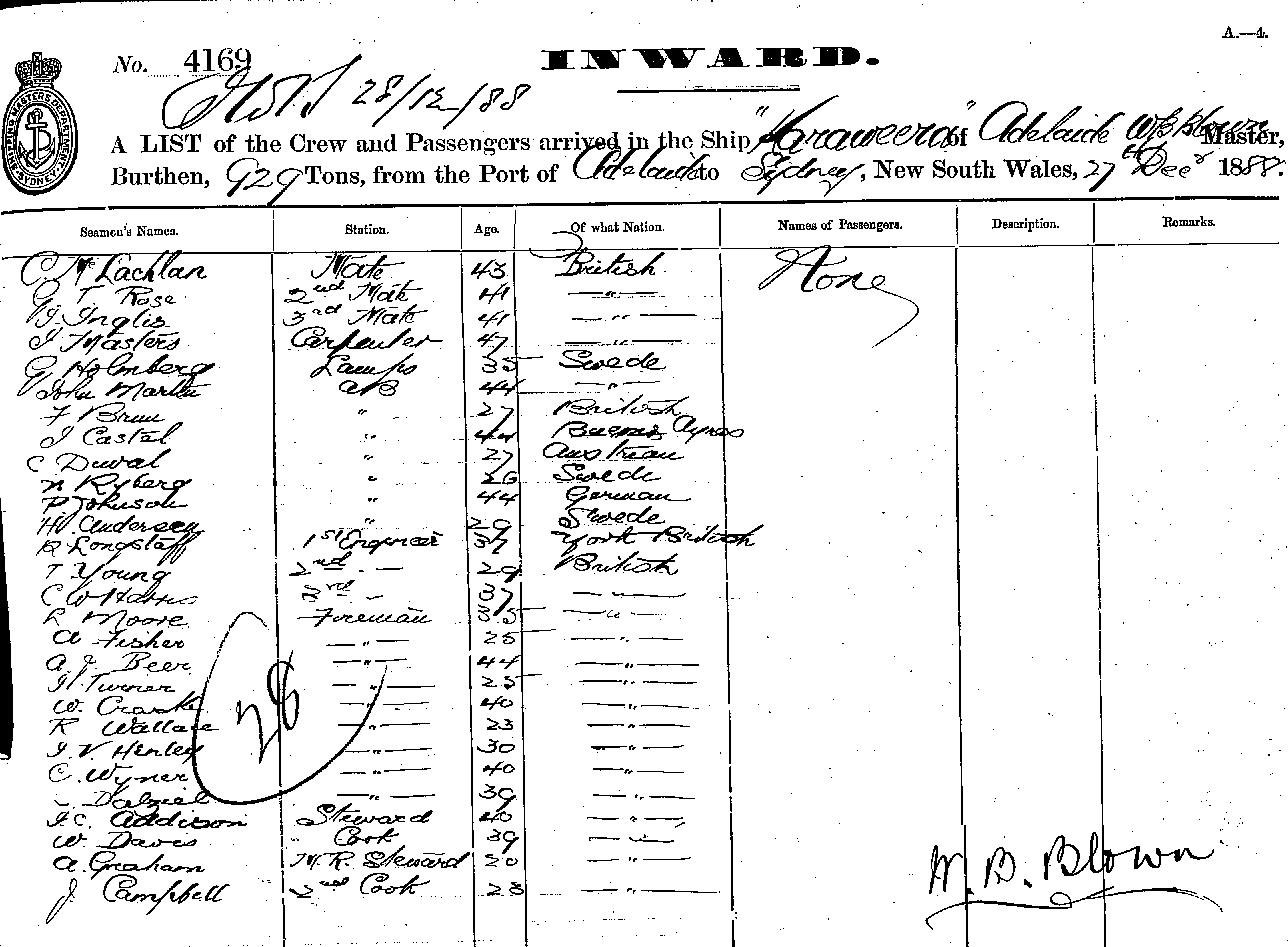 A.—4.
No. 4169 INWARD.
28/12/88
A LIST of the Crew and Passengers arrived in the Ship "Karaweera" of Adelaide W B Blown Master,
Burthen, 929 Tons, from the Port of Adelaide to Sydney, New South Wales, 27th Decr 1888.
SHIPPING MASTERS DEPARTMENT SYDNEY
Seamen's Names. Station. Age. Of what Nation. Names of Passengers. Description. Remarks.
C McLachlan Mate 43 British None
G T Rose 2nd Mate 41 — " —
J Inglis 3rd Mate 41 — " —
J Masters Carpenter 47 — " —
G Holmberg Lamps 35 Swede
John Martin AB 44 — " —
F Brun " 27 British
J Castel " 44 Buenos Ayres
C Duval " 27 Austrian
N Ryberg " 26 Swede
P Johnson " 44 German
H Andersen " 29 Swede
R Longstaff 1st Engineer 37 York British
T Young 2nd " 29 British
C W Harris 3rd " 37 — " —
L Moore Fireman 35 — " —
A Fisher — " — 25 — " —
A. J. Beer — " — 44 — " —
H Turner — " — 25 — " —
W. Craske — " — 40 — " —
R Wallace — " — 23 — " —
J. V. Henley — " — 30 — " —
C. Wyner — " — 40 — " —
Dalziel — " — 39 — " —
J. C. Addison Steward 40 — " —
W. Davis Cook 39 — " —
A. Graham M. R. Steward 20 — " —
J. Campbell 2nd Cook 23 — " —
28
W. B. Blown